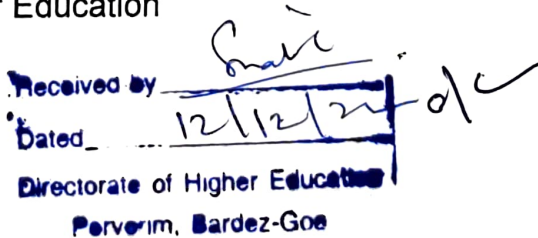 Education
Received by
Dated 12/12/2
Directorate of Higher Education
Porvorim, Bardez-Goa